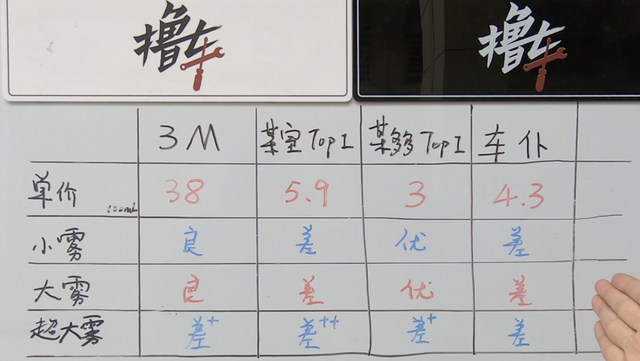 撸车
撸车
3M 某宝Top1 某多多Top1 车仆
单价 100ml 38 5.9 3 4.3
小雾 良 差 优 差
大雾 良 差 优 差
超大雾 差+ 差++ 差+ 差